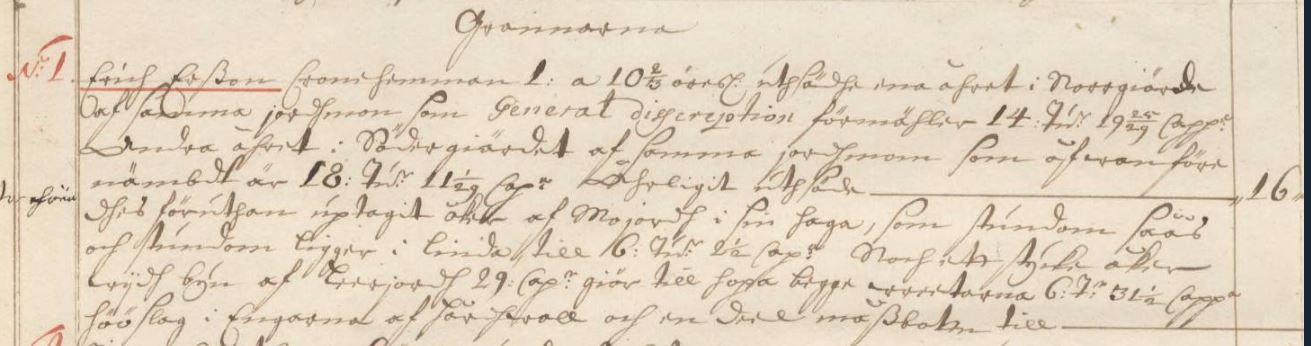 Grannarna
N:o 1. Erich Erßon Cronehemman 1: a 10 2/3 öresl: uthsädhe ena åhret i Norrgiärde
af samma jordhmon som General discription förmähler 14: Tu:r 19 25/29 Capp:r
Andra åhret i Södergiärdet af samma jordhmom som ofwan före
nämbdt är 18: Tu:r 11 1/29 Cap:r Åhrligit uthsäde 16
dhes föruthan uptagit åker af Mojordh i sin haga, som stundom såås
och stundom ligger i linda till 6: Tu:r 2 1/2 Cap:r Noch ett stycke åker
widh byn af Leerjordh 29: Cap:r giör till hopa begge 6: T:r 31 1/2 Capp:r
Höö slag i Engarna af och en deel måßbotn till